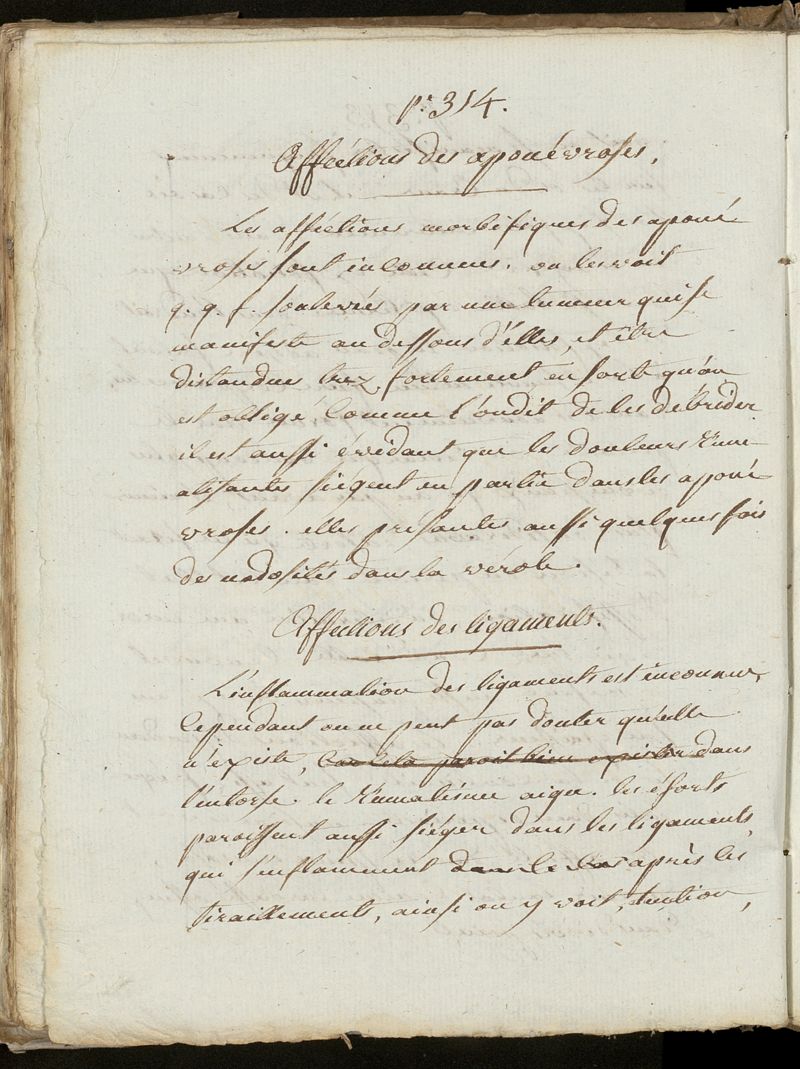 p. 314.
Affections des aponévroses.
Les affections morbifiques des aponé
vroses sont inconnues. on les voit
q. q. f. soulevées par une tumeur qui se
manifeste au dessous d'elles, et être
distandues trez fortement en sorte qu'on
est obligé comme l'on dit de les débrider
il est aussi évidant que les douleurs Rum-
atisantes siègent en partie dans les aponé
vroses. elles présentes aussi quelques fois
des nodosités dans la vérole.
Affections des ligaments.
L'inflammation des ligaments est inconnue,
Cependant on ne peut pas douter qu'elle
n'existe, car cela paroit bien exister dans
l'entorse. le Rumatisme aigu. les éforts
paroissent aussi siéger dans les ligaments,
qui s'inflamment dans le après les
tiraillements, ainsi on y voit, tention,